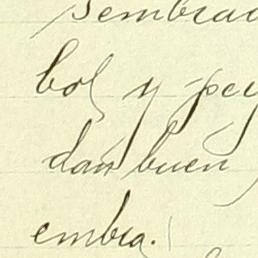 sembrad
bol y pey
dan buen
embra.